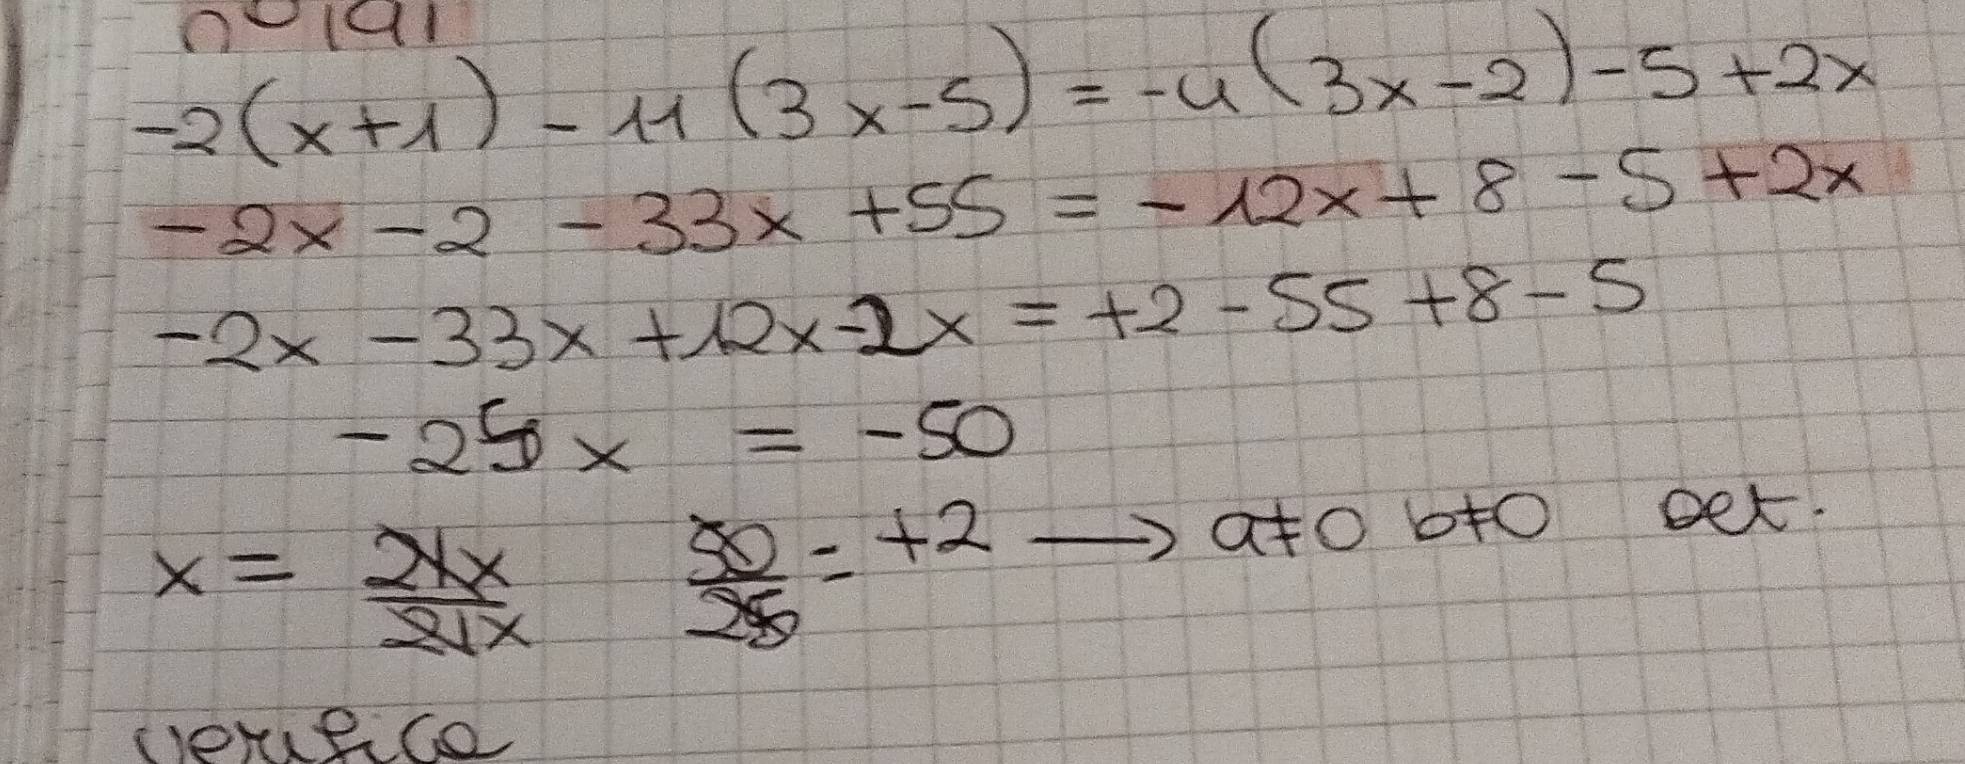 n° 191
-2(x+1) - 11(3x-5) = -4(3x-2) -5 +2x
-2x -2 -33x +55 = -12x + 8 -5 +2x
-2x -33x +12x -2x = +2 -55 +8 -5
-25x = -50
x = 50/25 = +2 → a≠0 b≠0 det.
verifica